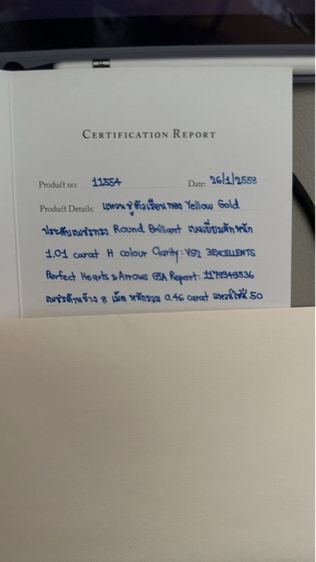 CERTIFICATION REPORT
Product no: 11554 Date: 26/1/2558
Product Details: แหวนชูตัวเรือนทอง Yellow Gold
ประดับเพชรทรง Round Brilliant เหลี่ยม น้ำหนัก
1.01 carat H colour Clarity: VS2 3EXCELLENTS
Perfect Hearts & Arrows GIA Report: 1179949536
เพชรด้านข้าง 8 เม็ด หนักรวม 0.46 carat แหวนไซส์ 50